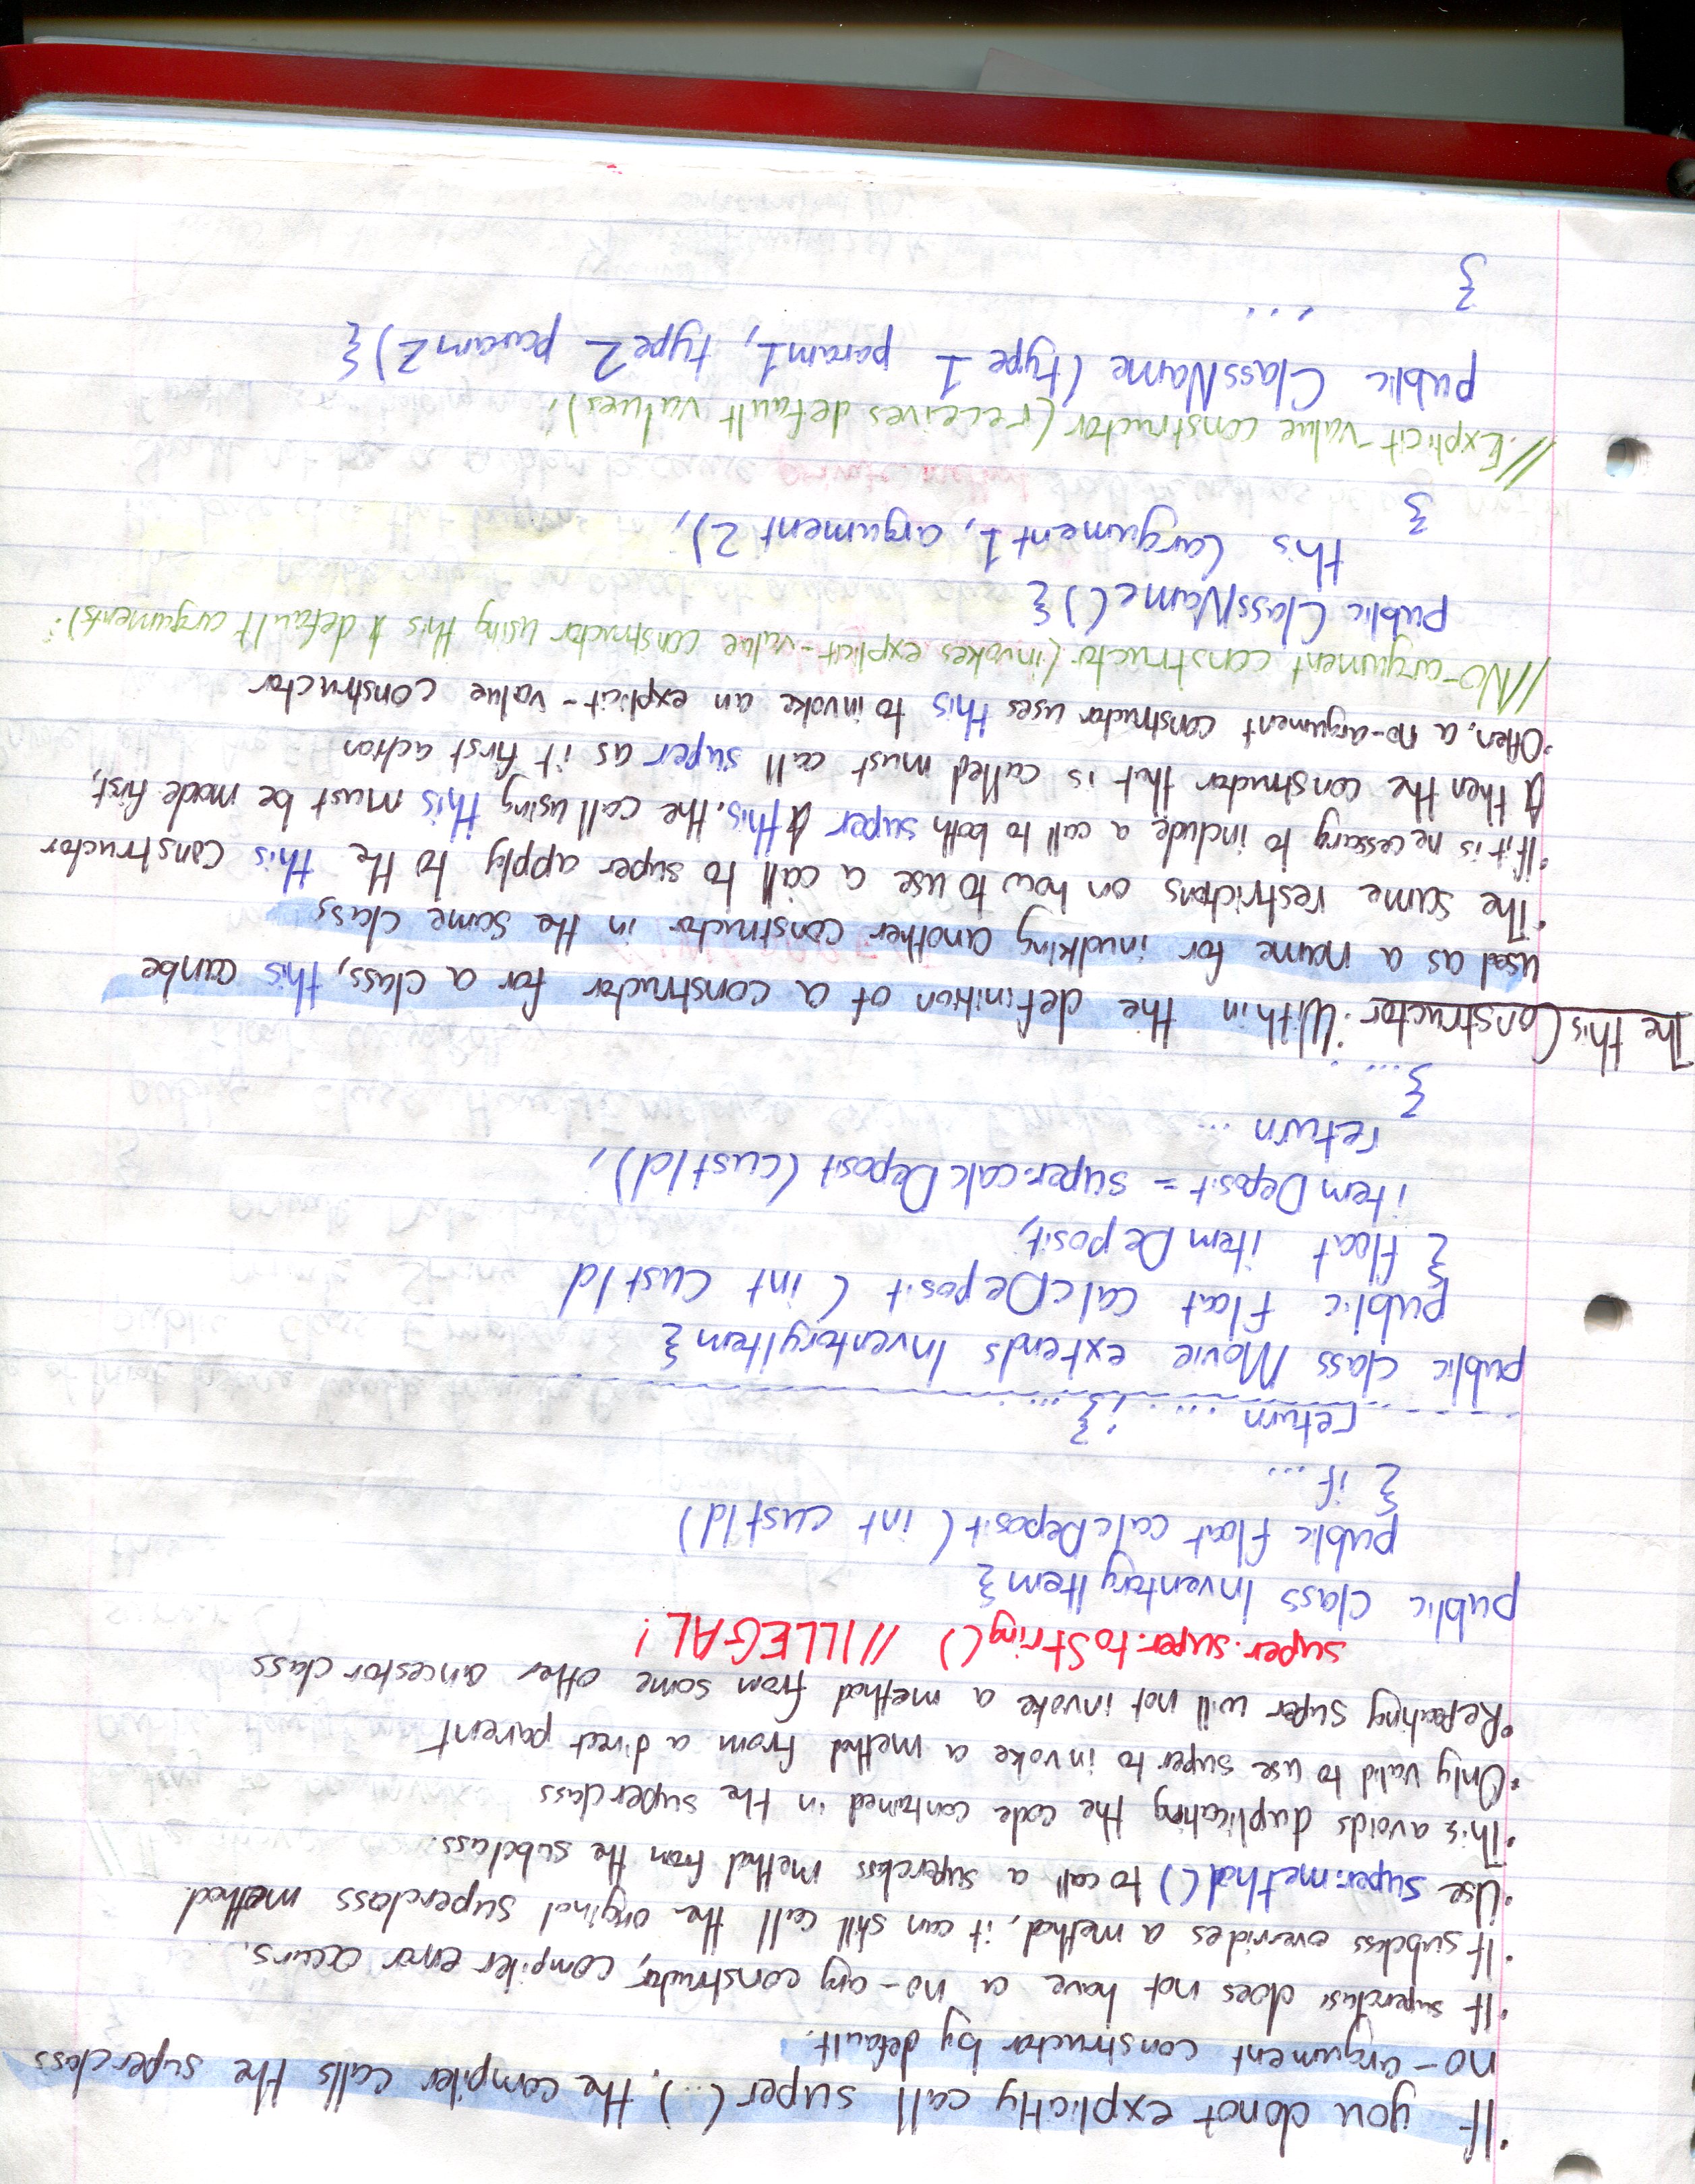 •If you donot explictly call super(...), the compiler calls the superclass
no-argument constructor by default.
•If superclass does not have a no-arg constructor, compiler error occurs.
•If subclass overrides a method, it can still call the original superclass method.
•Use super.method() to call a superclass method from the subclass.
•This avoids duplicating the code contained in the superclass
•Only valid to use super to invoke a method from a direct parent
•Repeating super will not invoke a method from some other ancestor class
super.super.toString() //ILLEGAL!
public class InventoryItem{
public float calcDeposit(int custId)
{ if ...
return ... ; }
public class Movie extends InventoryItem{
public float calcDeposit (int custId
{ float itemDeposit;
itemDeposit = super.calcDeposit(custId);
return ...
} ...
The this Constructor •Within the definition of a constructor for a class, this can be
used as a name for invoking another constructor in the same class
•The same restrictions on how to use a call to super apply to the this constructor
•If it is necessary to include a call to both super & this, the call using this must be made first,
& then the constructor that is called must call super as it first action
•Often, a no-argument constructor uses this to invoke an explicit-value constructor
//No-argument constructor (invokes explicit-value constructor using this & default arguments):
public ClassName(){
this (argument1, argument2);
}
//Explicit-value constructor (receives default values);
public ClassName(type1 param1, type2 param2){
...
}